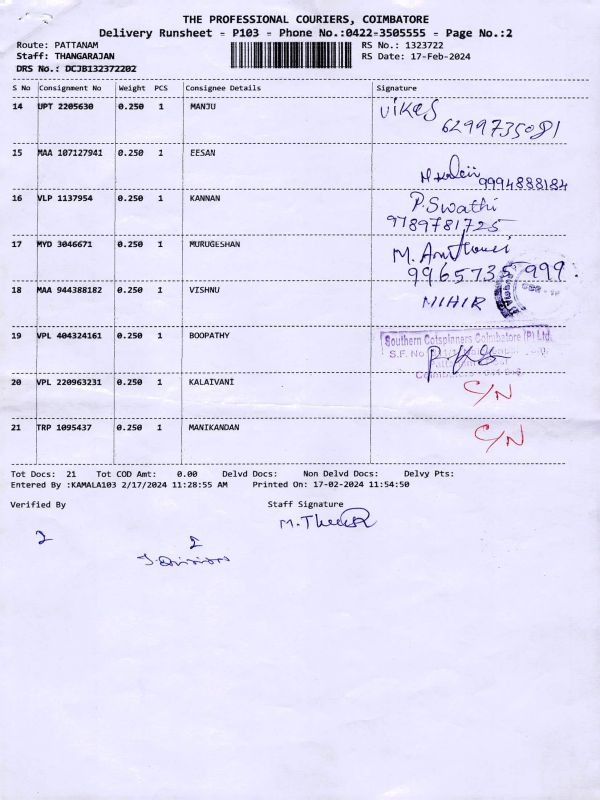 THE PROFESSIONAL COURIERS, COIMBATORE
Delivery Runsheet = P103 = Phone No.:0422=3505555 = Page No.:2
Route: PATTANAM
RS No.: 1323722
Staff: THANGARAJAN
RS Date: 17-Feb-2024
DRS No.: DCJB132372202
S No Consignment No Weight PCS Consignee Details Signature
14 UPT 2205630 0.250 1 MANJU Vikas
6299735081
15 MAA 107127941 0.250 1 EESAN
9994888184
16 VLP 1137954 0.250 1 KANNAN P.Swathi
9789781725
17 MYD 3046671 0.250 1 MURUGESHAN M.
9965735999.
18 MAA 944388182 0.250 1 VISHNU NIHIR
19 VPL 404324161 0.250 1 BOOPATHY Southern Cotspinners Coimbatore (P) Ltd.
S.F. No
20 VPL 220963231 0.250 1 KALAIVANI C/N
21 TRP 1095437 0.250 1 MANIKANDAN C/N
Tot Docs: 21 Tot COD Amt: 0.00 Delvd Docs: Non Delvd Docs: Delvy Pts:
Entered By :KAMALA103 2/17/2024 11:28:55 AM Printed On: 17-02-2024 11:54:50
Verified By Staff Signature